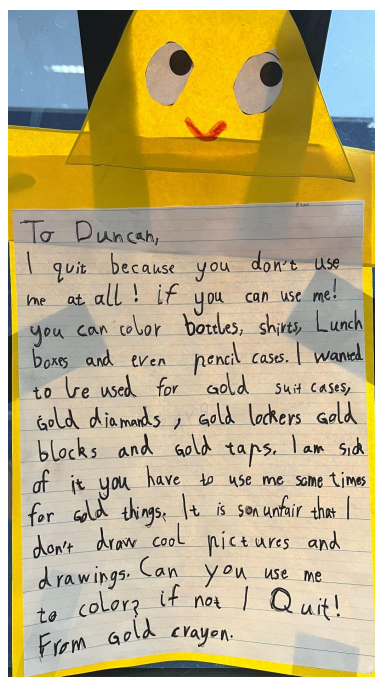 To Duncan,
I quit because you don't use
me at all! if you can use me!
you can color bottles, shirts, Lunch
boxes and even pencil cases. I wanted
to be used for Gold suit cases,
Gold diamands, Gold lockers Gold
blocks and Gold taps. I am sick
of it you have to use me some times
for Gold things. It is so unfair that I
don't draw cool pictures and
drawings. Can you use me
to color? if not I Quit!
From Gold crayon.